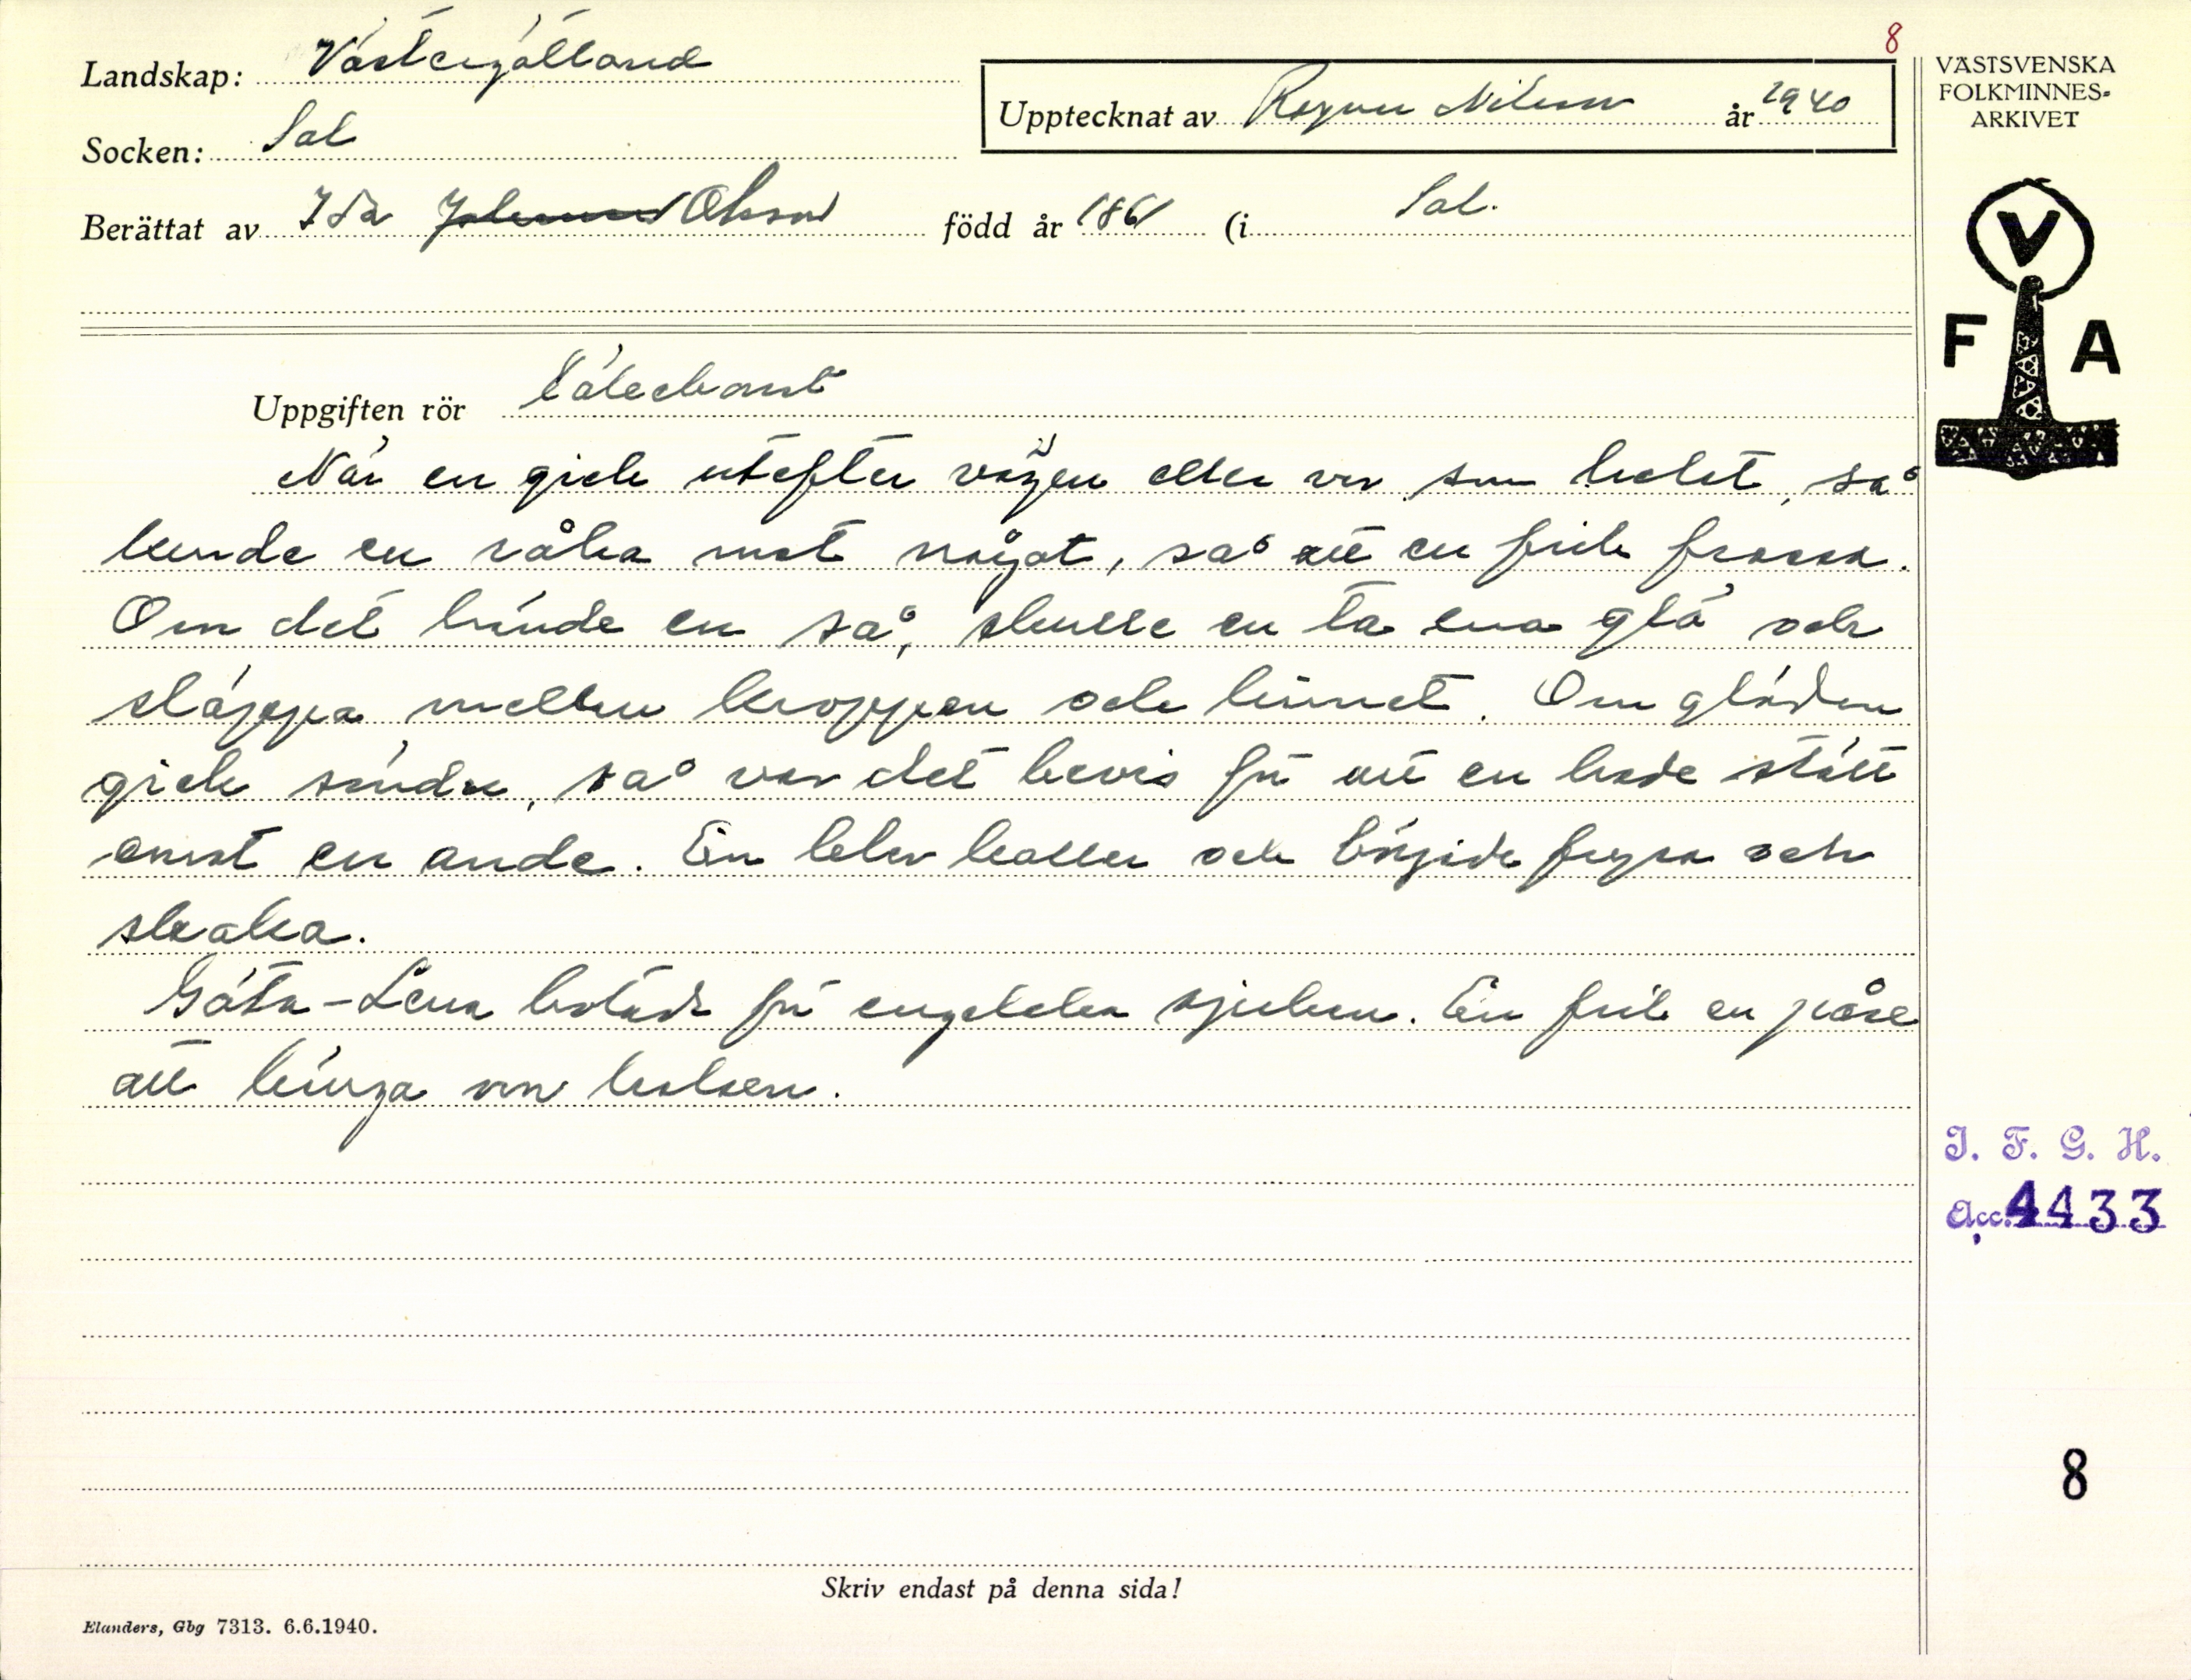 8
Landskap: Västergötland
Socken: Sal
Upptecknat av Ragnar Nilsson år 1940
Berättat av Ida Johansson Olsson född år 1861 (i Sal.
VÄSTSVENSKA
FOLKMINNES-
ARKIVET
V
F A
Uppgiften rör Läkekonst
När en gick utefter vägen eller var som helst, så
kunde en råka mot något, så att en fick frossa.
Om det hände en så, skulle en ta ena glö och
släppa mellan kroppen och linnet. Om glöden
gick sönder, så var det bevis för att en hade stött
emot en ande. En blev kaller och började frysa och
skaka.
Göta-Lena botade för engelska sjukan. En fick en påse
att hänga om halsen.
I. F. G. H.
Acc. 4433
8
Skriv endast på denna sida!
Elanders, Gbg 7313. 6.6.1940.